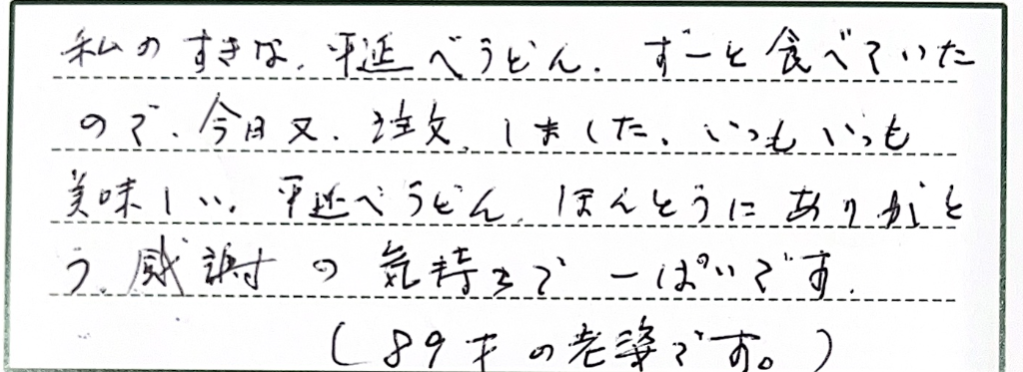 私のすきな、平延べうどん、ずーと食べていた
ので、今日又、注文、しました、いつもいつも
美味しい、平延べうどん、ほんとうにありがと
う、感謝の気持ちで一ぱいです。
(89才の老婆です。)